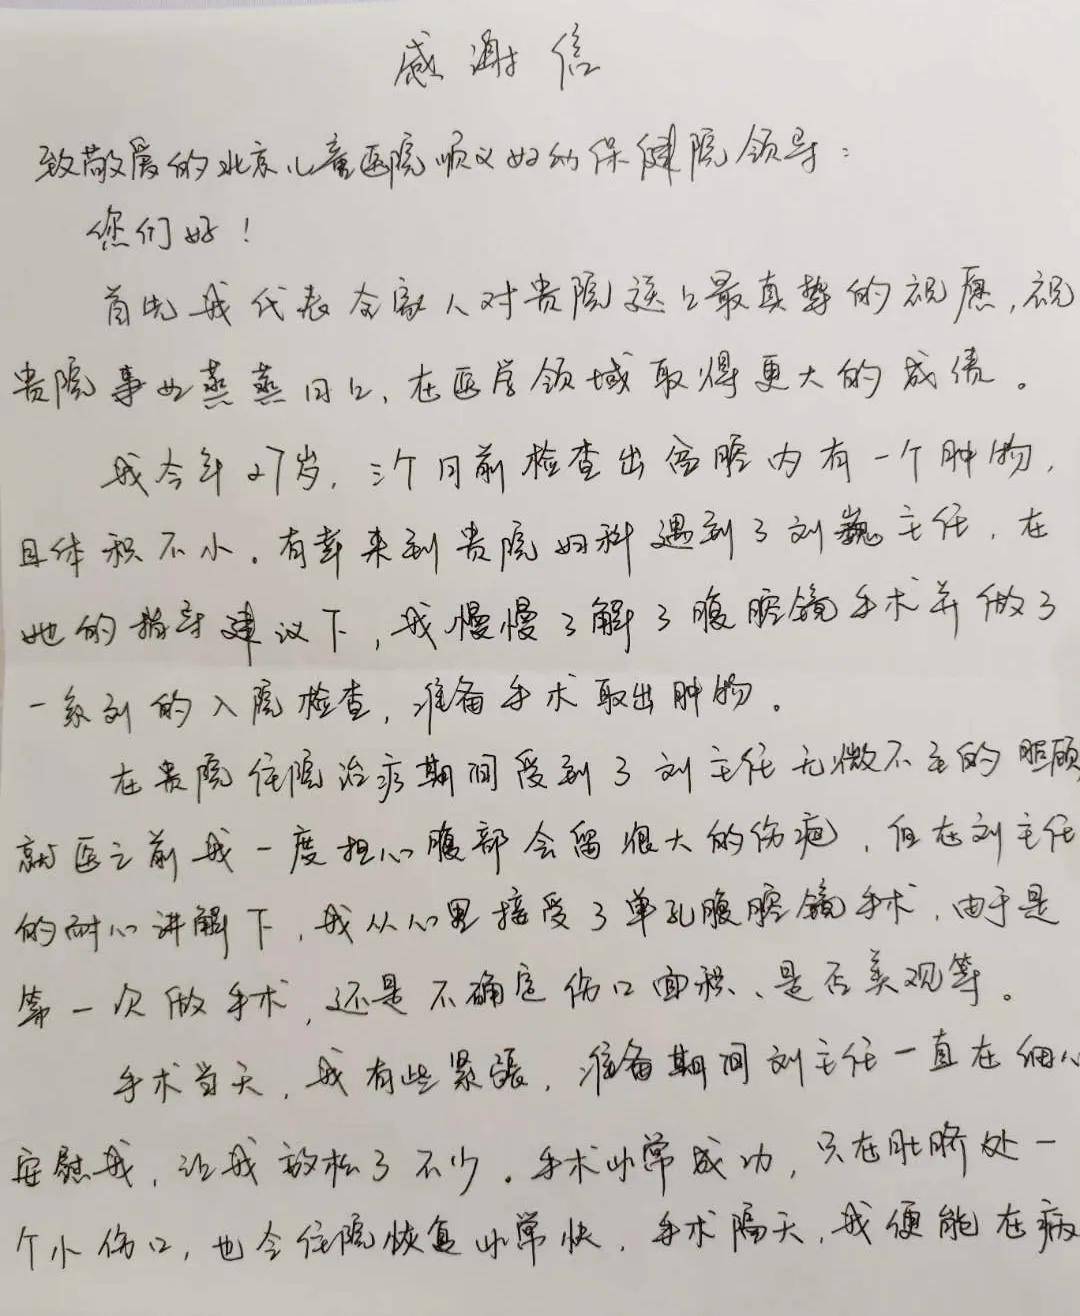 感谢信
致敬爱的北京儿童医院顺义妇幼保健院领导：
您们好！
首先我代表全家人对贵院送上最真挚的祝愿，祝
贵院事业蒸蒸日上，在医学领域取得更大的成绩。
我今年27岁，三个月前检查出宫腔内有一个肿物，
且体积不小。有幸来到贵院妇科遇到了刘巍主任，在
她的指导建议下，我慢慢了解了腹腔镜手术并做了
一系列的入院检查，准备手术取出肿物。
在贵院住院治疗期间受到了刘主任无微不至的照顾
就医之前我一度担心腹部会留很大的伤疤，但在刘主任
的耐心讲解下，我从心里接受了单孔腹腔镜手术，由于是
第一次做手术，还是不确定伤口面积、是否美观等。
手术当天，我有些紧张，准备期间刘主任一直在细心
安慰我，让我放松了不少。手术非常成功，只在肚脐处一
个小伤口，也令住院恢复非常快，手术隔天，我便能在病